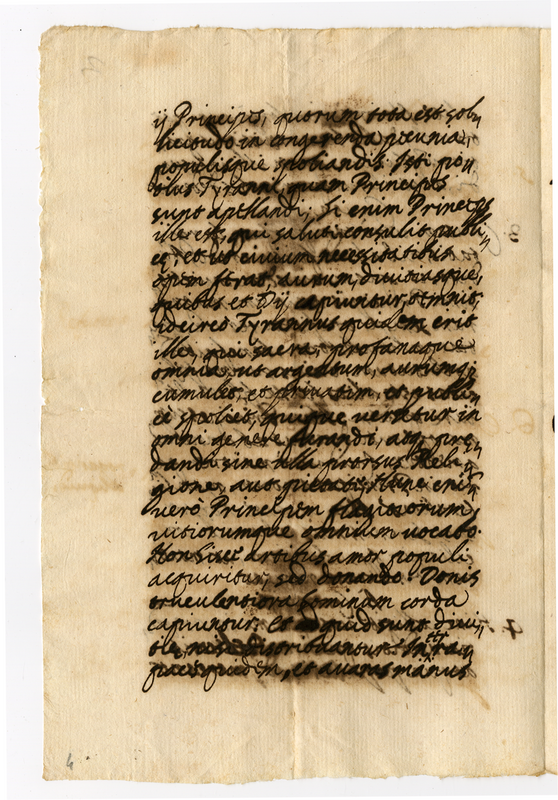 ij Principis, quorum tota est sol„
licitudo in congerenda pecunia,
populisque spoliandis. Isti po„
tius Tyranni, quam Principes
sunt apellandi; Si enim Princeps
ille est, qui saluti consulit publi„
cę, et ut civium necessitatibus
opem ferat, aurum, divitiasque,
quibus et Dij capiuntur,
idcircò Tyrannus quidem erit
ille, qui sacra, profanaque
omnia, ut argentum, aurumq;
cumulet, et privatim, et publi„
cè spoliet, quique versatur in
omni genere furandi, atq; pre„
dandi sine ulla prorsus Reli„
gione, aut pietate, hunc enim
verò Principem flagitiorum,
vitiorumque omnium vocabo.
Non sisce artibus amor populi
acquiritur, sed donando. Donis
truculentiora hominum corda
capiuntur. Et ad quid sunt divi„
tię, nisi distribuantur?
quidem, et avaras manus
4.